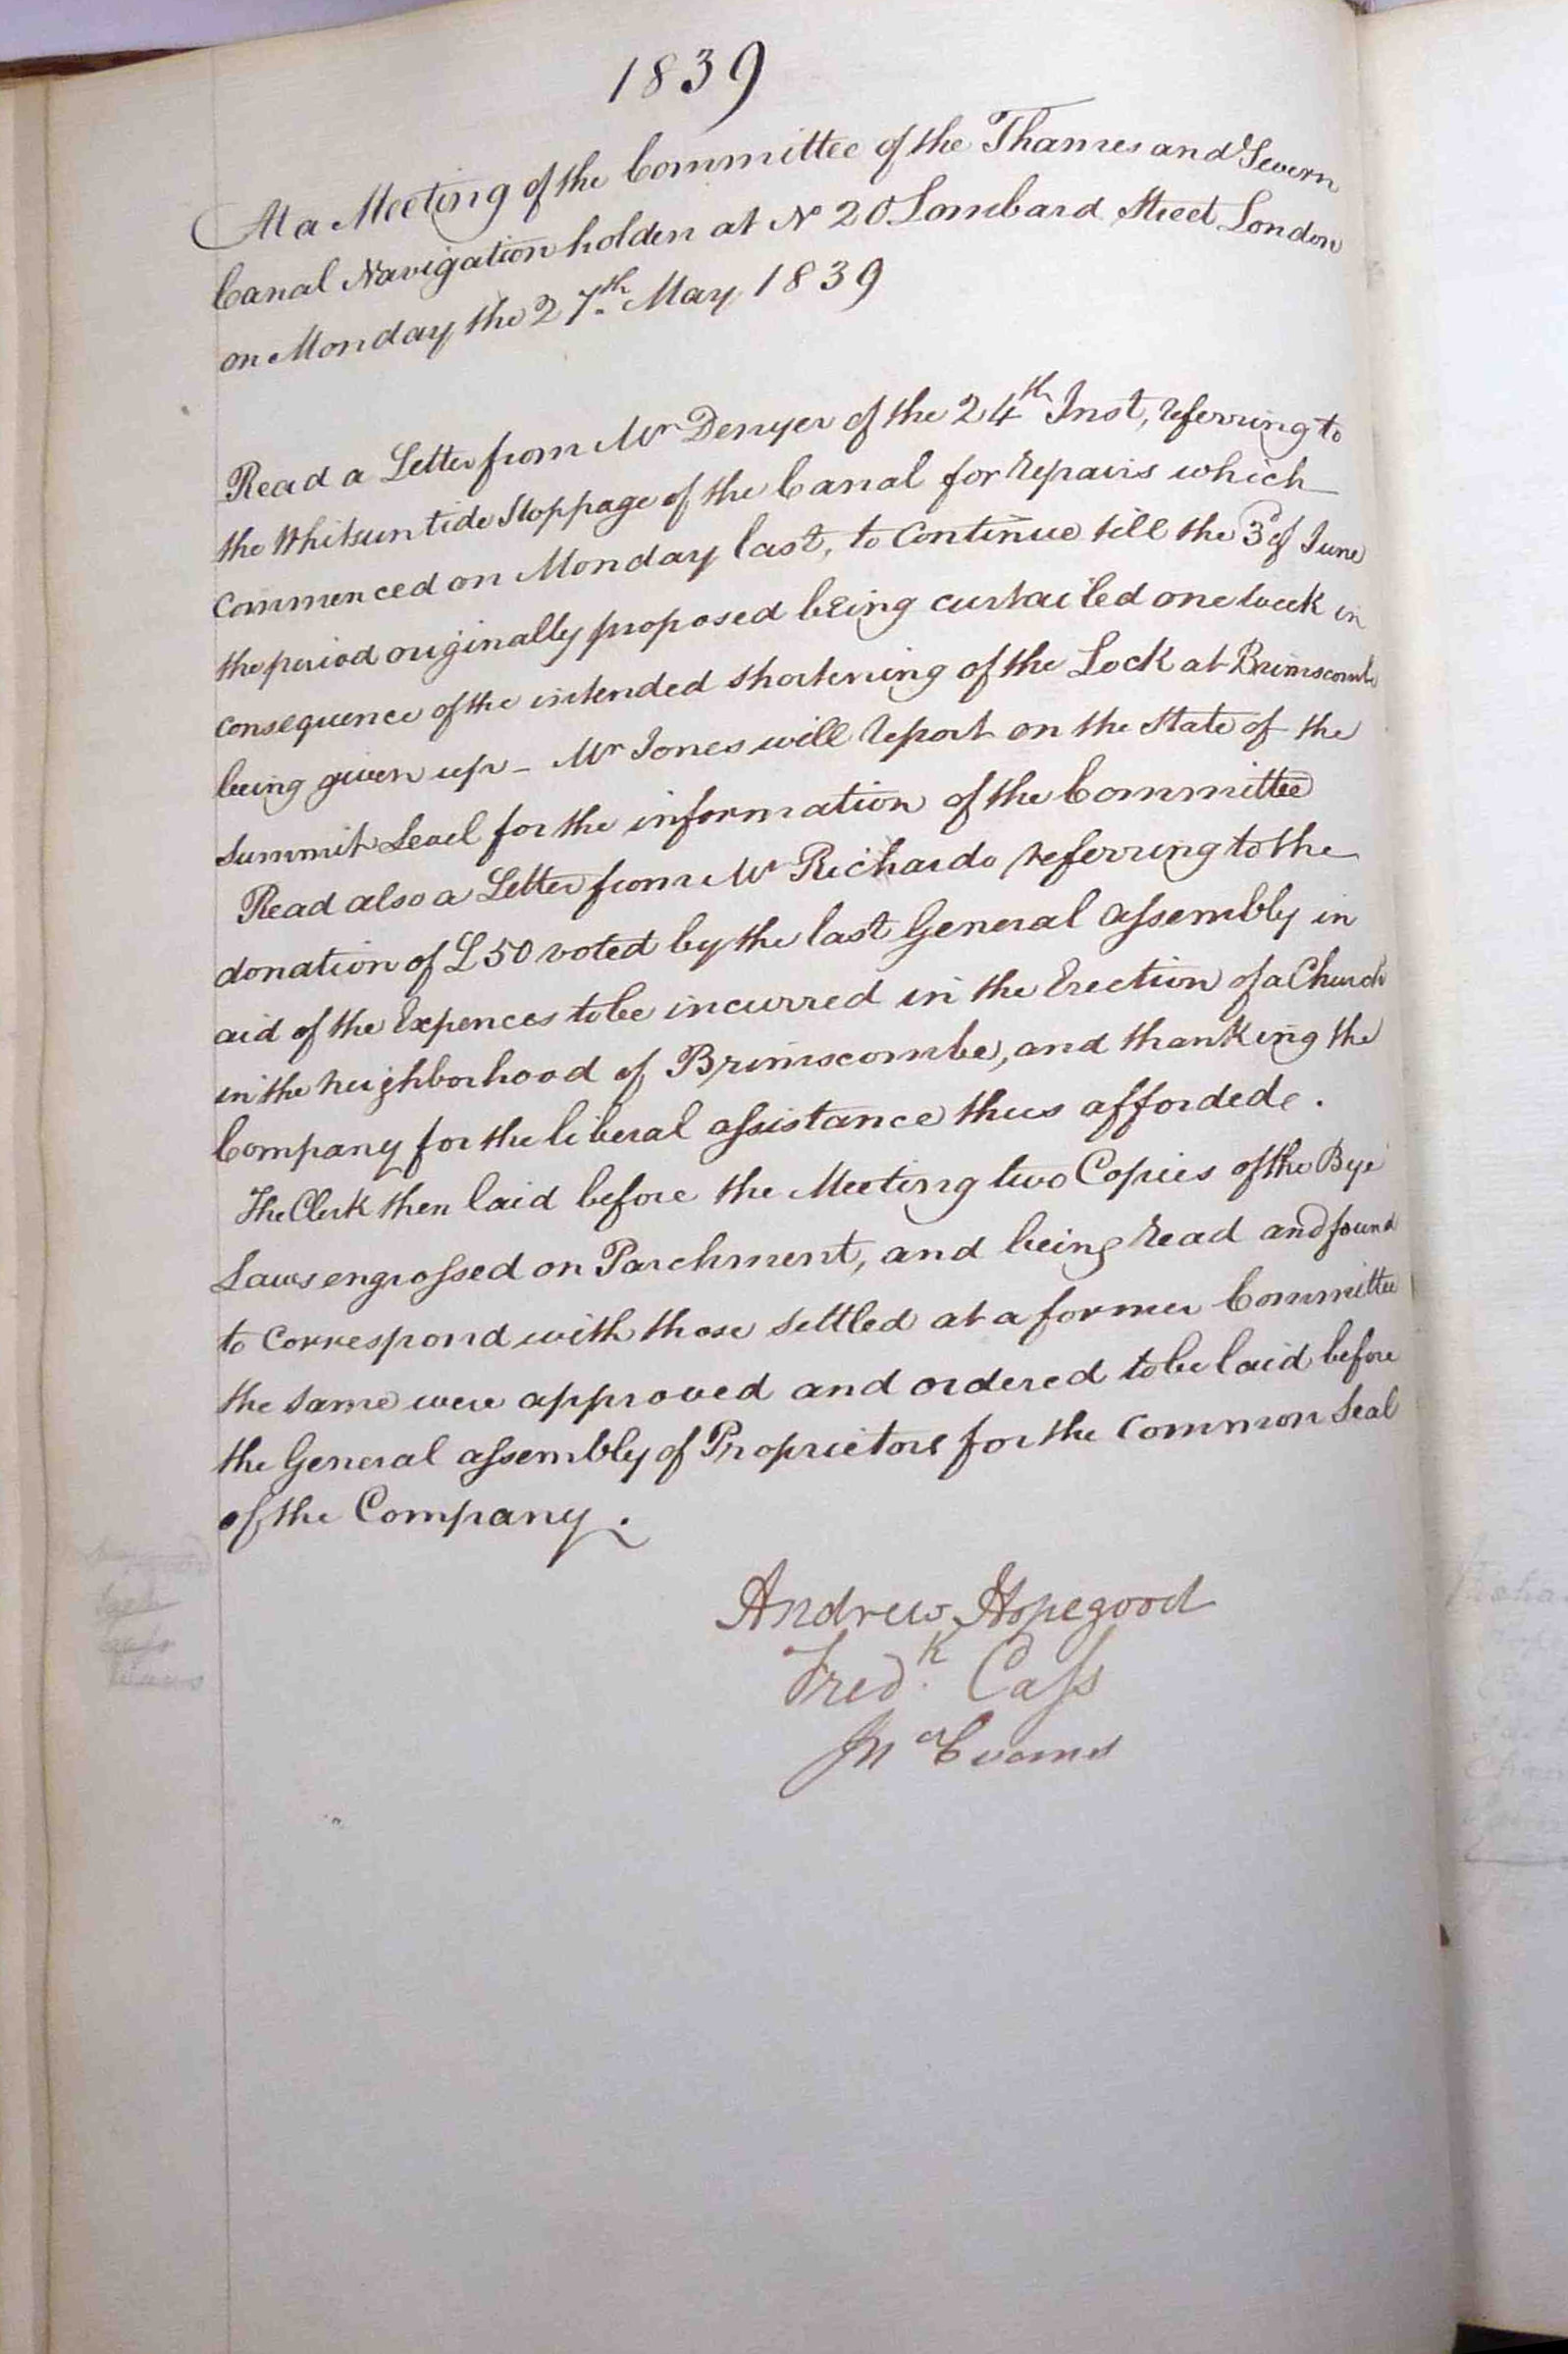 1839
At a Meeting of the Committee of the Thames and Severn
Canal Navigation holden at No 20 Lombard Street London
on Monday the 27th May 1839
Read a Letter from Mr Denyer of the 24th Inst, referring to
the Whitsuntide Stoppage of the Canal for repairs which
commenced on Monday last, to continue till the 3d of June
the period originally proposed being curtailed one week in
consequence of the intended shortening of the Lock at Brimscombe
being given up - Mr Jones will report on the State of the
Summit Level for the information of the Committee
Read also a Letter from Mr Richardo referring to the
donation of £50 voted by the last General Assembly in
aid of the Expences to be incurred in the Erection of a Church
in the neighborhood of Brimscombe, and thanking the
Company for the liberal assistance thus afforded.
The Clerk then laid before the Meeting two Copies of the Bye
Laws engrossed on Parchment, and being read and found
to correspond with those settled at a former Committee
the same were approved and ordered to be laid before
the General Assembly of Proprietors for the Common Seal
of the Company.
Andrew Hopegood
Fredk. Cass
Jn Evans